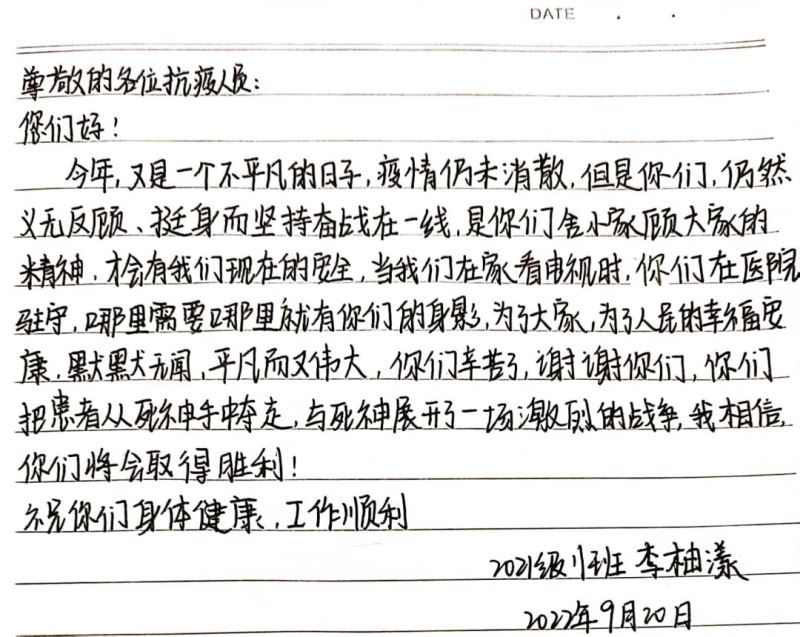 DATE . .
尊敬的各位抗疫人员:
您们好!
今年,又是一个不平凡的日子,疫情仍未消散,但是你们,仍然
义无反顾、挺身而坚持奋战在一线,是你们舍小家顾大家的
精神,才会有我们现在的安全,当我们在家看电视时,你们在医院
驻守,哪里需要哪里就有你们的身影,为了大家,为了人民的幸福安
康,默默无闻,平凡而又伟大,你们辛苦了,谢谢你们,你们
把患者从死神手中夺走,与死神展开了一场激烈的战争,我相信,
你们将会取得胜利!
祝你们身体健康,工作顺利
2021级1班 李柚漾
2022年9月20日